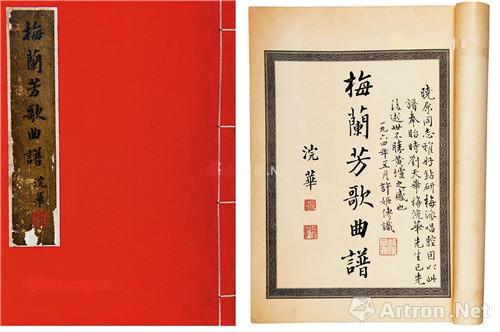 梅蘭芳歌曲譜
浣華
曉原同志雅好鉆研梅派唱腔因以此
譜奉貽時劉天華梅浣華先生已先
後逝世不勝黃壚之感也
一九六四年五月許姬傳識
梅蘭芳歌曲譜
浣華
Artron.Net